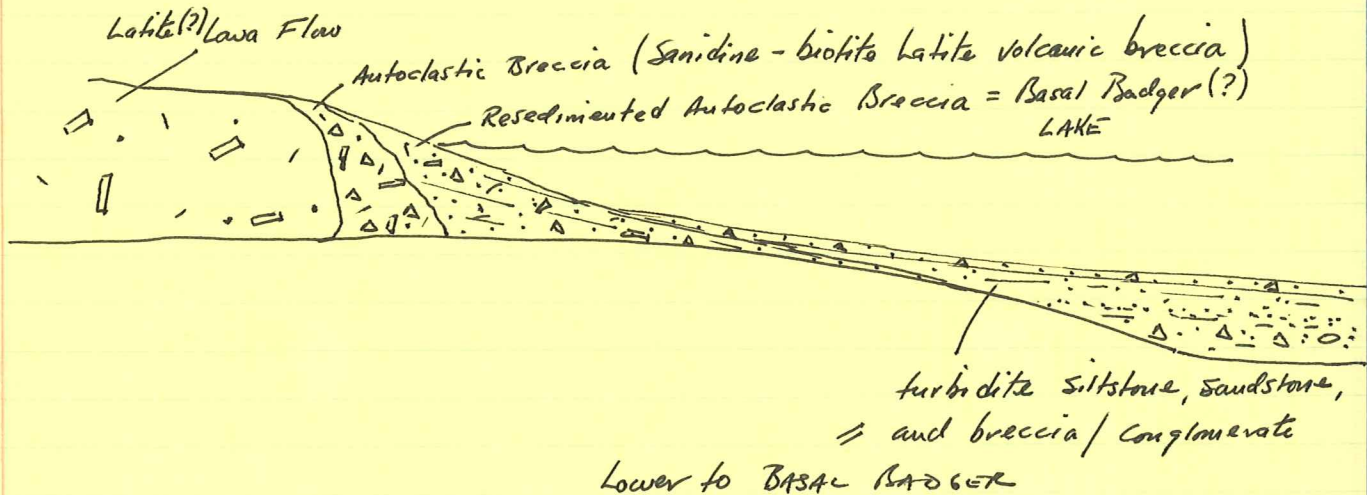 Latite(?) Lava Flow
Autoclastic Breccia (Sanidine - biotite Latite volcanic breccia)
Resedimented Autoclastic Breccia = Basal Badger(?)
LAKE
turbidite siltstone, sandstone,
and breccia / conglomerate
Lower to BASAL BADGER